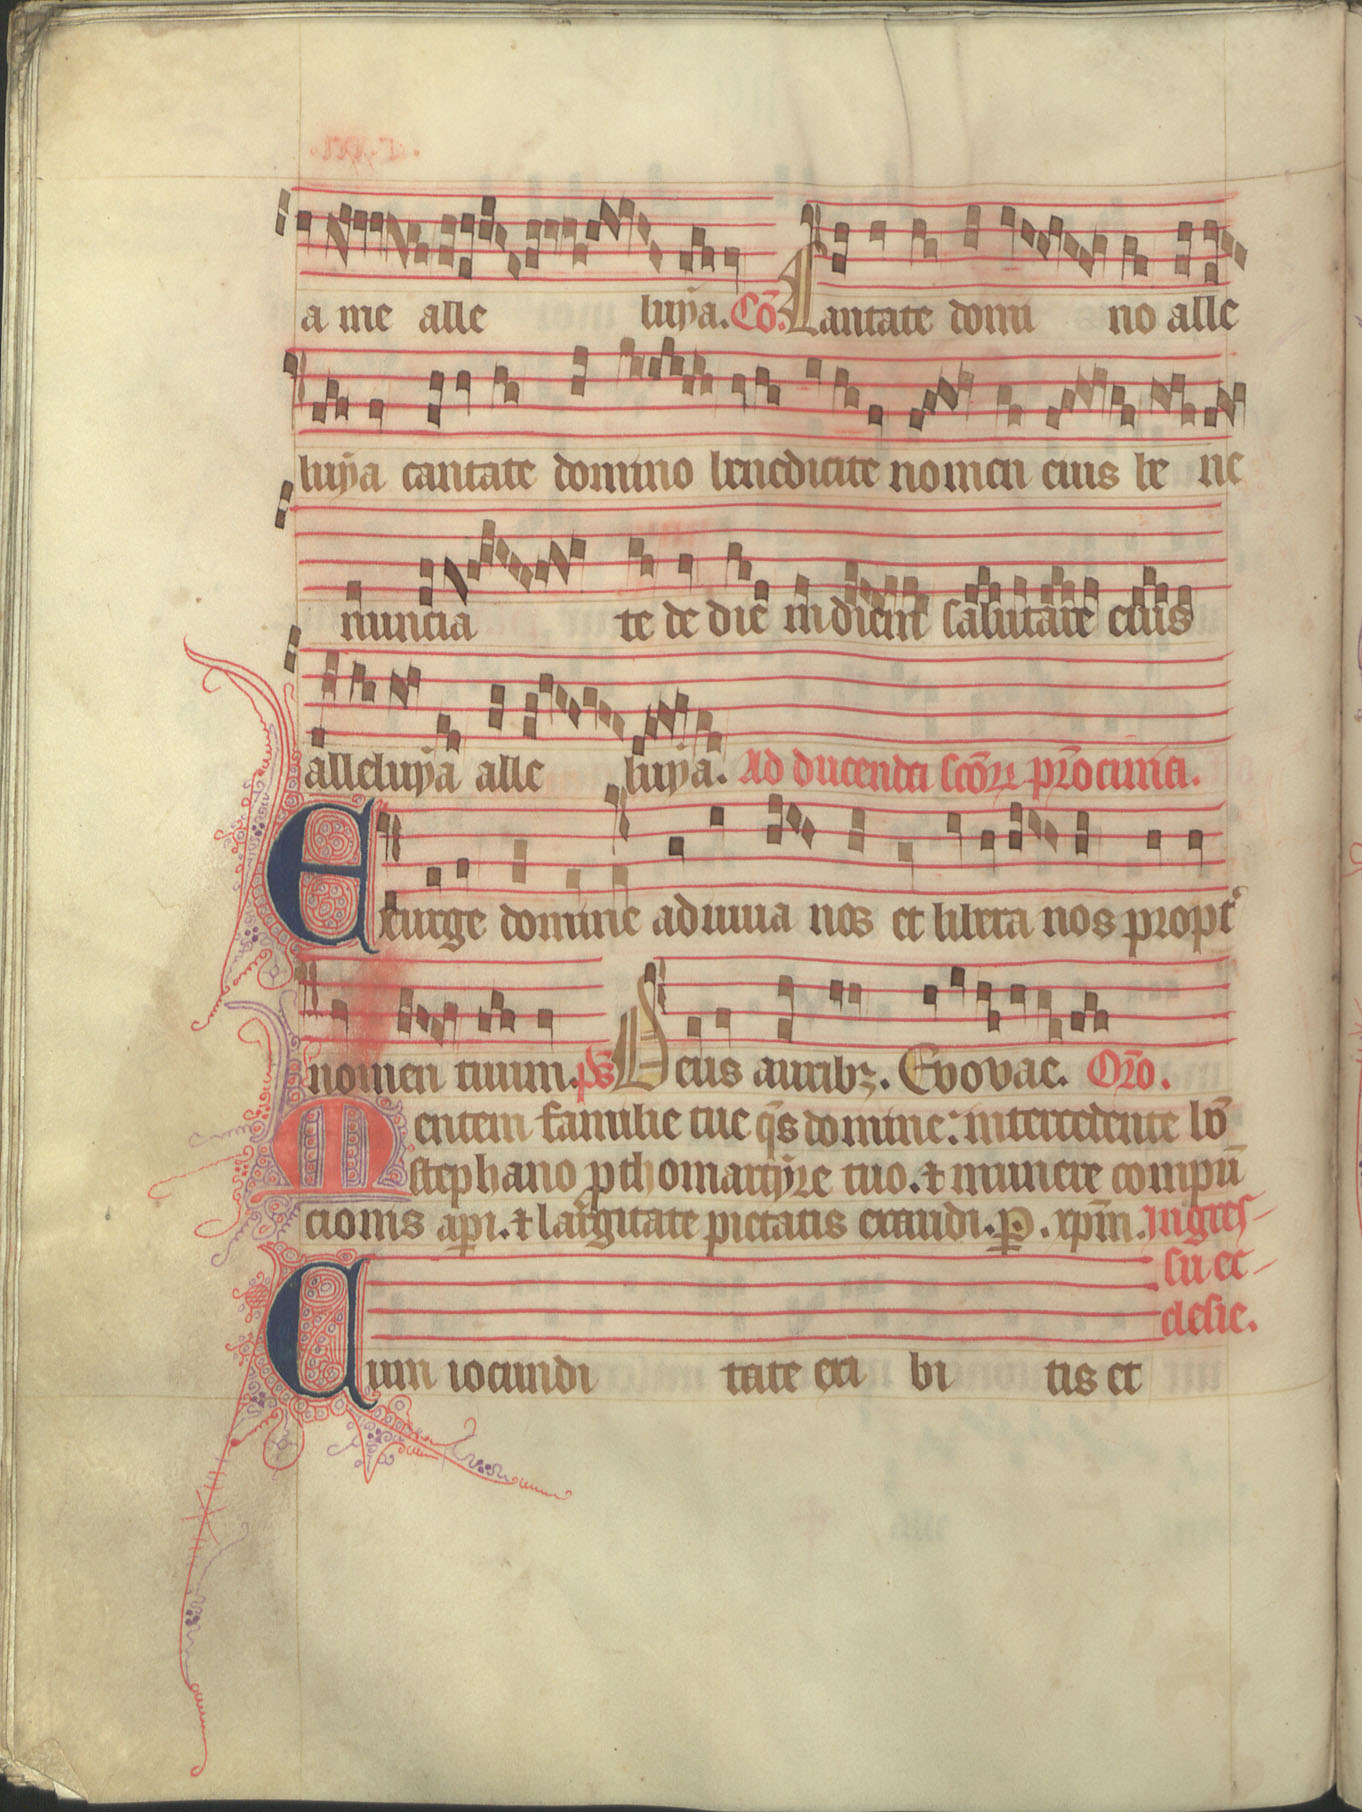 a me alle luẏa. Cō. Cantate domi no alle
luẏa cantate domino benedicite nomen eius be ne
nuncia te de die in diem salutare eius
alleluẏa alle luẏa. Ad ducenda scōꝝ
Exurge domine adiuua nos et libera nos propt᷑
nomen tuum. ps Deus auribꝫ. Evovae. Oꝛo.
Mentem familie tue q̄s domine: intercedente bō
stephano ꝓthomartẏre tuo. ⁊ munere compū
cionis api. ⁊ largitate pietatis exaudi. ꝑ. xp̄m. Ingres-
su et
Cum iocundi tate exi bi tis et